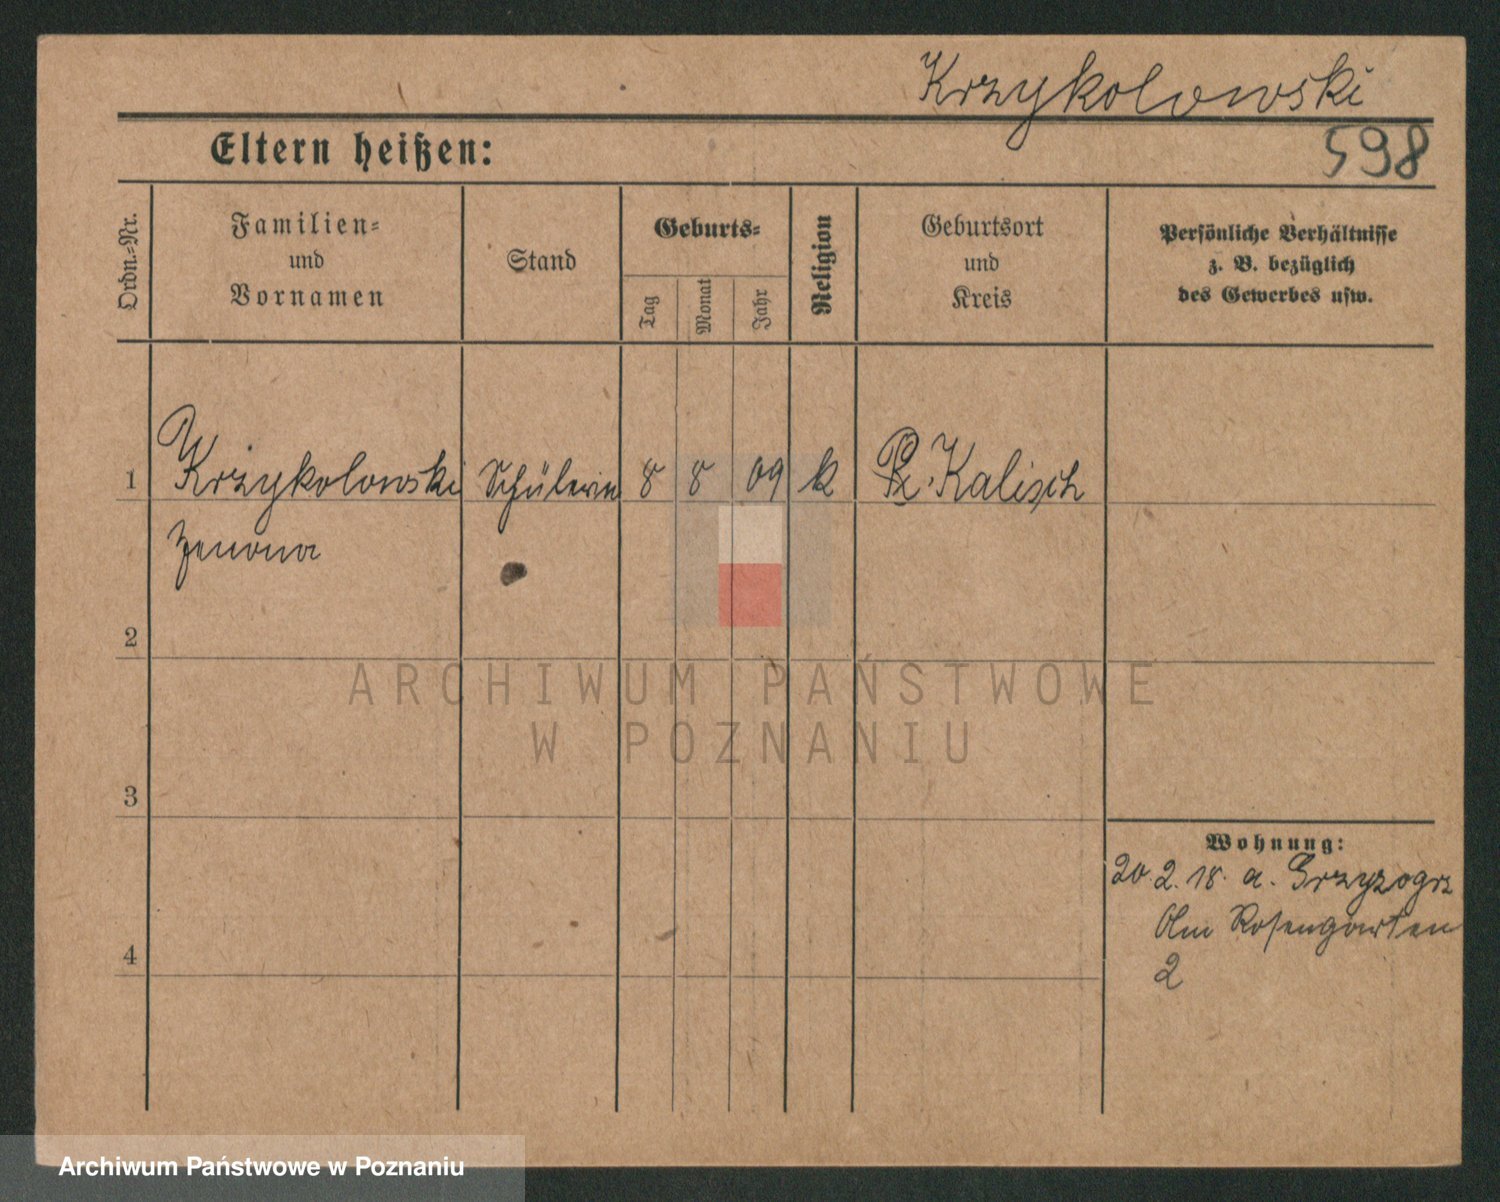 Krzykolowski
Eltern heißen:
598
Ordn.-Nr.
Familien-
und
Vornamen
Stand
Geburts-
Tag
Monat
Jahr
Religion
Geburtsort
und
Kreis
Persönliche Verhältnisse
z. B. bezüglich
des Gewerbes usw.
1 Krzykolowski Schülerin 8 8 09 k Kalisch
Zenona
2
3
4
Wohnung:
20.2.18. a.
Am Rosengarten
2
ARCHIWUM PAŃSTWOWE
W POZNANIU
Archiwum Państwowe w Poznaniu